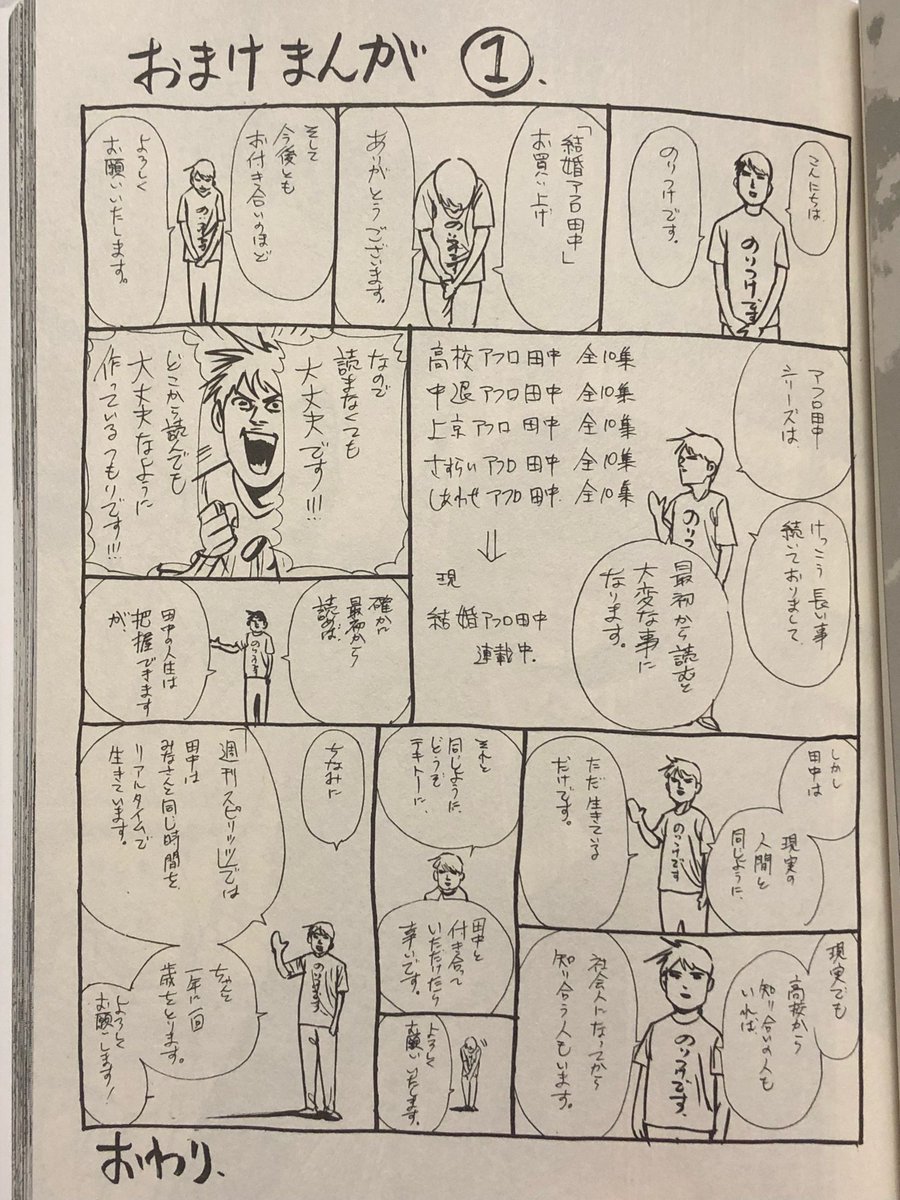 おまけまんが ①.
こんにちは
のりつけです。
のりつけです
「結婚アフロ田中」
お買い上げ
ありがとうございます。
そして
今後とも
お付き合いのほど
よろしく
お願いいたします。
アフロ田中
シリーズは
けっこう長い事
続いておりまして
最初から読むと
大変な事に
なります。
のりつ
高校アフロ田中 全10集
中退アフロ田中 全10集
上京アフロ田中 全10集
さすらいアフロ田中 全10集
しあわせアフロ田中 全10集
⇓
現
結婚アフロ田中
連載中.
なので
読まなくても
大丈夫です!!!
どこから読んでも
大丈夫なように
作っているつもりです!!!
の
確かに
最初から
読めば、
田中の人生は
把握できます
が、
しかし
田中は
現実の
人間と
同じように、
ただ生きている
だけです。
のりつけです
現実でも
高校から
知り合いの人も
いれば、
社会人になってから
知り合う人もいます。
のりつけです.
それと
同じように
どうぞ
テキトーに、
田中と
付き合って
いただけたら
幸いです。
よろしく
お願いいたします。
ちなみに
「週刊スピリッツ」では
田中は
みなさんと同じ時間を
リアルタイムで
生きています。
ちゃんと
一年に一回
歳をとります。
よろしく
お願いします!
のりつけです
おわり.